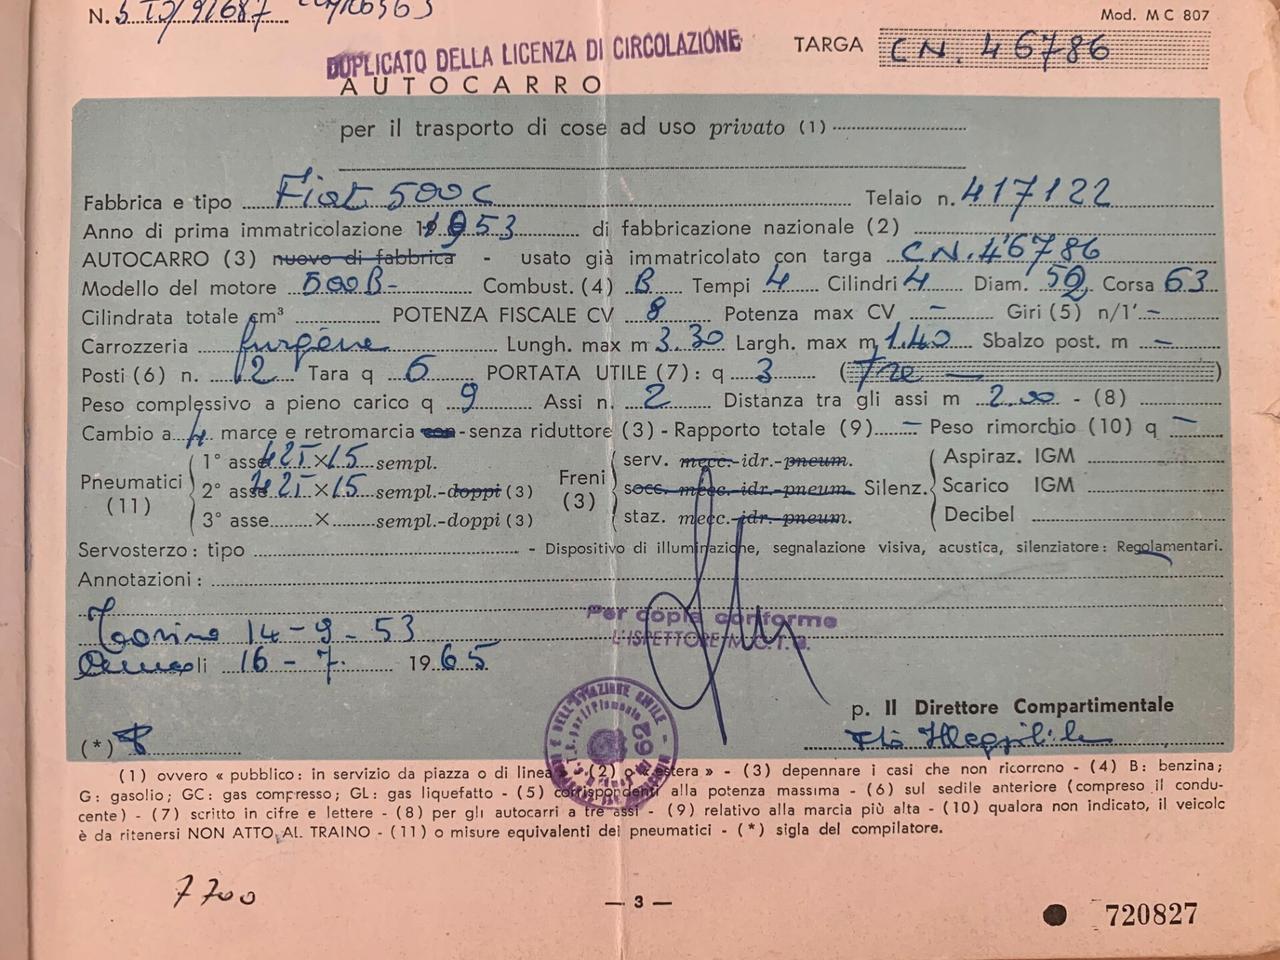 N.
Mod. M C 807
DUPLICATO DELLA LICENZA DI CIRCOLAZIONE
TARGA CN. 46786
AUTOCARRO
per il trasporto di cose ad uso privato (1)
Fabbrica e tipo Fiat 500C Telaio n. 417122
Anno di prima immatricolazione 1953 di fabbricazione nazionale (2)
AUTOCARRO (3) nuovo di fabbrica - usato già immatricolato con targa CN. 46786
Modello del motore 500B- Combust. (4) B Tempi 4 Cilindri 4 Diam. 52 Corsa 63
Cilindrata totale cm³ POTENZA FISCALE CV 8 Potenza max CV - Giri (5) n/1' -
Carrozzeria furgone Lungh. max m 3.30 Largh. max m 1.40 Sbalzo post. m -
Posti (6) n. 2 Tara q 6 PORTATA UTILE (7): q 3 (Tre -)
Peso complessivo a pieno carico q 9 Assi n. 2 Distanza tra gli assi m 2.00 - (8)
Cambio a 4 marce e retromarcia con-senza riduttore (3) - Rapporto totale (9) - Peso rimorchio (10) q -
Pneumatici (11)
1° asse 425 × 15 sempl.
2° asse 425 × 15 sempl.-doppi (3)
3° asse × sempl.-doppi (3)
Freni (3)
serv. mecc.-idr.-pneum.
socc. mecc.-idr.-pneum.
staz. mecc.-idr.-pneum.
Silenz.
Aspiraz. IGM
Scarico IGM
Decibel
Servosterzo: tipo - Dispositivo di illuminazione, segnalazione visiva, acustica, silenziatore: Regolamentari.
Annotazioni:
Torino 14-9-53
Per copia conforme
L'ISPETTORE M.C.T.C.
li 16-7- 1965
p. Il Direttore Compartimentale
(*)
(1) ovvero « pubblico: in servizio da piazza o di linea » - (2) o « estera » - (3) depennare i casi che non ricorrono - (4) B: benzina;
G: gasolio; GC: gas compresso; GL: gas liquefatto - (5) corrispondenti alla potenza massima - (6) sul sedile anteriore (compreso il condu-
cente) - (7) scritto in cifre e lettere - (8) per gli autocarri a tre assi - (9) relativo alla marcia più alta - (10) qualora non indicato, il veicolo
è da ritenersi NON ATTO AL TRAINO - (11) o misure equivalenti dei pneumatici - (*) sigla del compilatore.
7700
— 3 —
720827